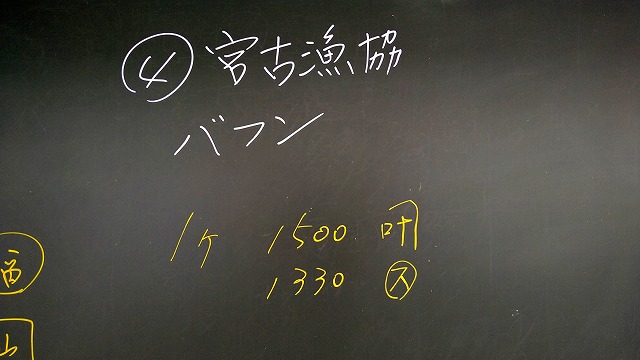 ④ 宮古漁協
バフン
1ケ 1500 叶
1330 ㋜